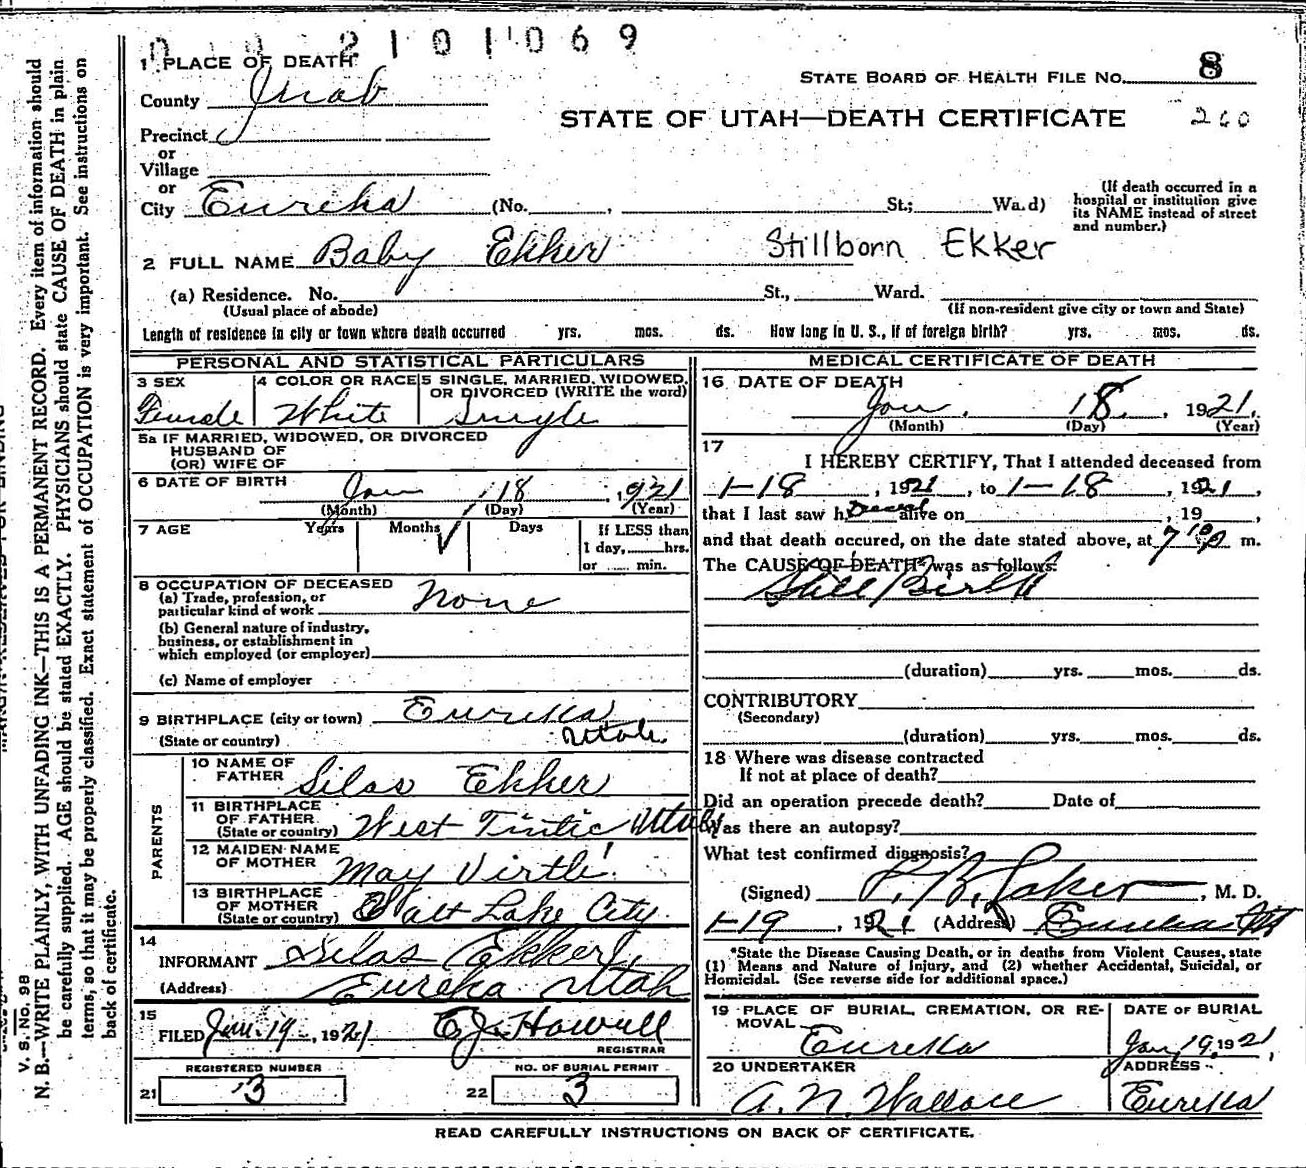 2101069
1 PLACE OF DEATH
STATE BOARD OF HEALTH FILE NO. 8
County Juab
STATE OF UTAH—DEATH CERTIFICATE 260
Precinct
or
Village
or
City Eureka (No. , St.; Wa.d)
(If death occurred in a
hospital or institution give
its NAME instead of street
and number.)
2 FULL NAME Baby Ekker Stillborn Ekker
(a) Residence. No. St., Ward.
(Usual place of abode) (If non-resident give city or town and State)
Length of residence in city or town where death occurred yrs. mos. ds. How long in U. S., if of foreign birth? yrs. mos. ds.
PERSONAL AND STATISTICAL PARTICULARS
3 SEX 4 COLOR OR RACE 5 SINGLE, MARRIED, WIDOWED,
OR DIVORCED (WRITE the word)
Female White Single
5a IF MARRIED, WIDOWED, OR DIVORCED
HUSBAND OF
(OR) WIFE OF
6 DATE OF BIRTH Jan 18, 1921
(Month) (Day) (Year)
7 AGE Years Months Days If LESS than
1 day, hrs.
or min.
8 OCCUPATION OF DECEASED
(a) Trade, profession, or
particular kind of work None
(b) General nature of industry,
business, or establishment in
which employed (or employer)
(c) Name of employer
9 BIRTHPLACE (city or town) Eureka
(State or country) Utah.
PARENTS
10 NAME OF
FATHER Silas Ekker
11 BIRTHPLACE
OF FATHER
(State or country) West Tintic Utah
12 MAIDEN NAME
OF MOTHER May Virtle
13 BIRTHPLACE
OF MOTHER
(State or country) Salt Lake City
14
INFORMANT Silas Ekker,
(Address) Eureka Utah
15
FILED Jan. 19, 1921 E.J. Howell
REGISTRAR
REGISTERED NUMBER NO. OF BURIAL PERMIT
21 3 22 3
MEDICAL CERTIFICATE OF DEATH
16 DATE OF DEATH
Jan. 18, 1921.
(Month) (Day) (Year)
17
I HEREBY CERTIFY, That I attended deceased from
1-18, 1921, to 1-18, 1921,
that I last saw h alive on , 19 ,
and that death occured, on the date stated above, at 7 10 P m.
The CAUSE OF DEATH* was as follows:
Still Birth
(duration) yrs. mos. ds.
CONTRIBUTORY
(Secondary)
(duration) yrs. mos. ds.
18 Where was disease contracted
If not at place of death?
Did an operation precede death? Date of
Was there an autopsy?
What test confirmed diagnosis?
(Signed) , M. D.
1-19, 1921 (Address) Eureka Ut
*State the Disease Causing Death, or in deaths from Violent Causes, state
(1) Means and Nature of Injury, and (2) whether Accidental, Suicidal, or
Homicidal. (See reverse side for additional space.)
19 PLACE OF BURIAL, CREMATION, OR RE-
MOVAL DATE OF BURIAL
Eureka Jan 19, 1921,
20 UNDERTAKER ADDRESS
A. N. Wallace Eureka
READ CAREFULLY INSTRUCTIONS ON BACK OF CERTIFICATE.
V. S. No. 98
N. B.—WRITE PLAINLY, WITH UNFADING INK—THIS IS A PERMANENT RECORD. Every item of information should
be carefully supplied. AGE should be stated EXACTLY. PHYSICIANS should state CAUSE OF DEATH in plain
terms, so that it may be properly classified. Exact statement of OCCUPATION is very important. See instructions on
back of certificate.